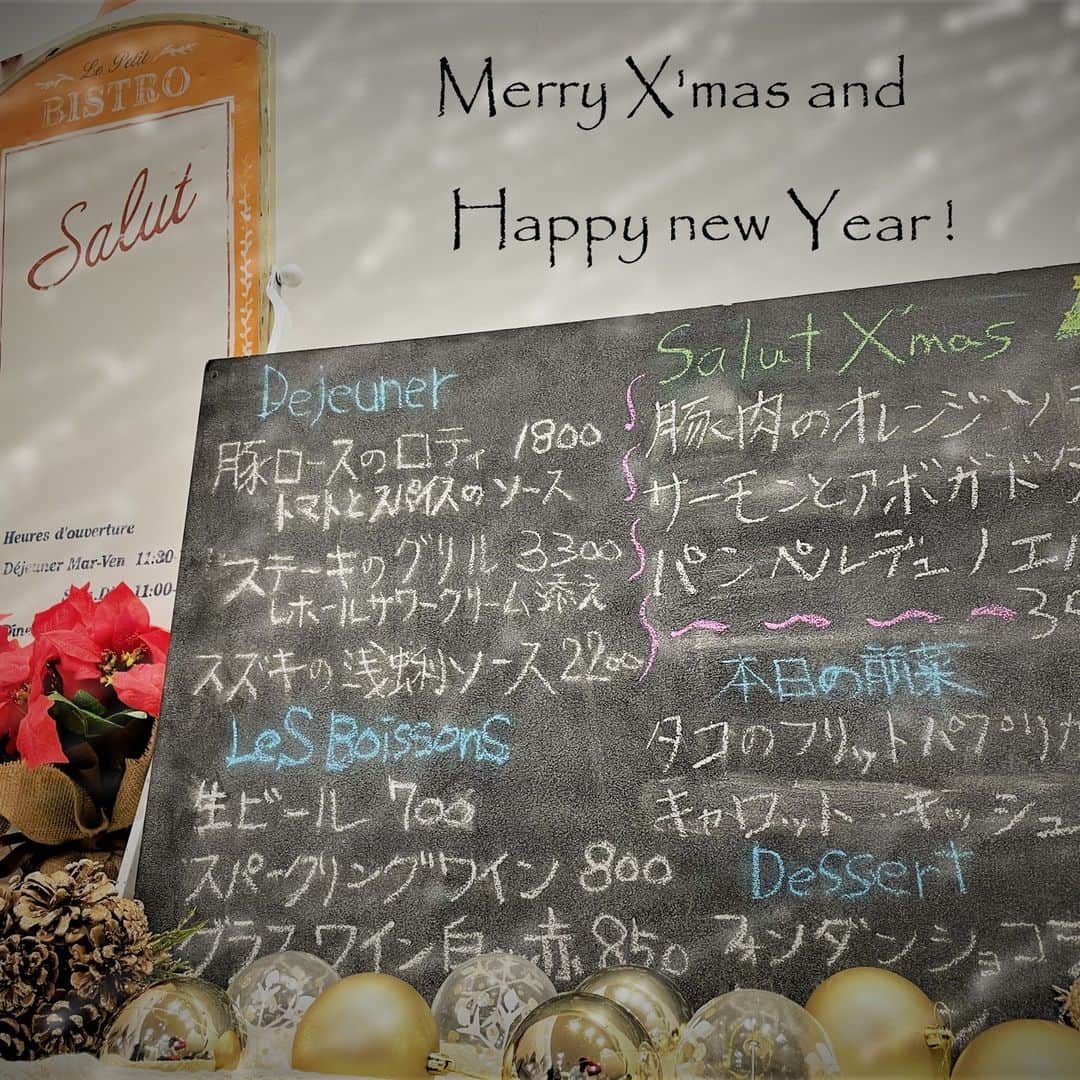 Le Petit
BISTRO
Salut
Heures d'ouverture
Déjeuner Mar-Ven 11:30-
11:00-
Merry X'mas and
Happy new Year !
Dejeuner
豚ロースのロティ 1800
トマトとスパイスのソース
ステーキのグリル 3300
ホールサワークリーム添え
スズキの浅蜊ソース 2200
LeS Boissons
生ビール 700
スパークリングワイン 800
グラスワイン白 赤 850
Salut X'mas
豚肉のオレンジソ
サーモンとアボガド
パンペルデュノエル
本日の前菜
タコのフリットパプリカ
キャロット・キッシュ
Dessert
フォンダンショコラ